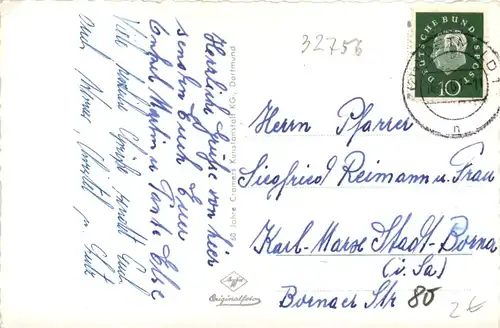 32756
Herrliche Grüße von hier
senden Euch Euer
Onkel Martin u. Tante Else
Viele herzliche Grüße sendet Euch
auch u.
60 Jahre Cramers Kunstanstalt KG., Dortmund
DEUTSCHE BUNDESPOST
10
n
Herrn Pfarrer
Siegfried Reimann u. Frau
Karl-Marx Stadt-Borna
(i. Sa)
Bornaer Str 80
Agfa
Originalfoto
2€